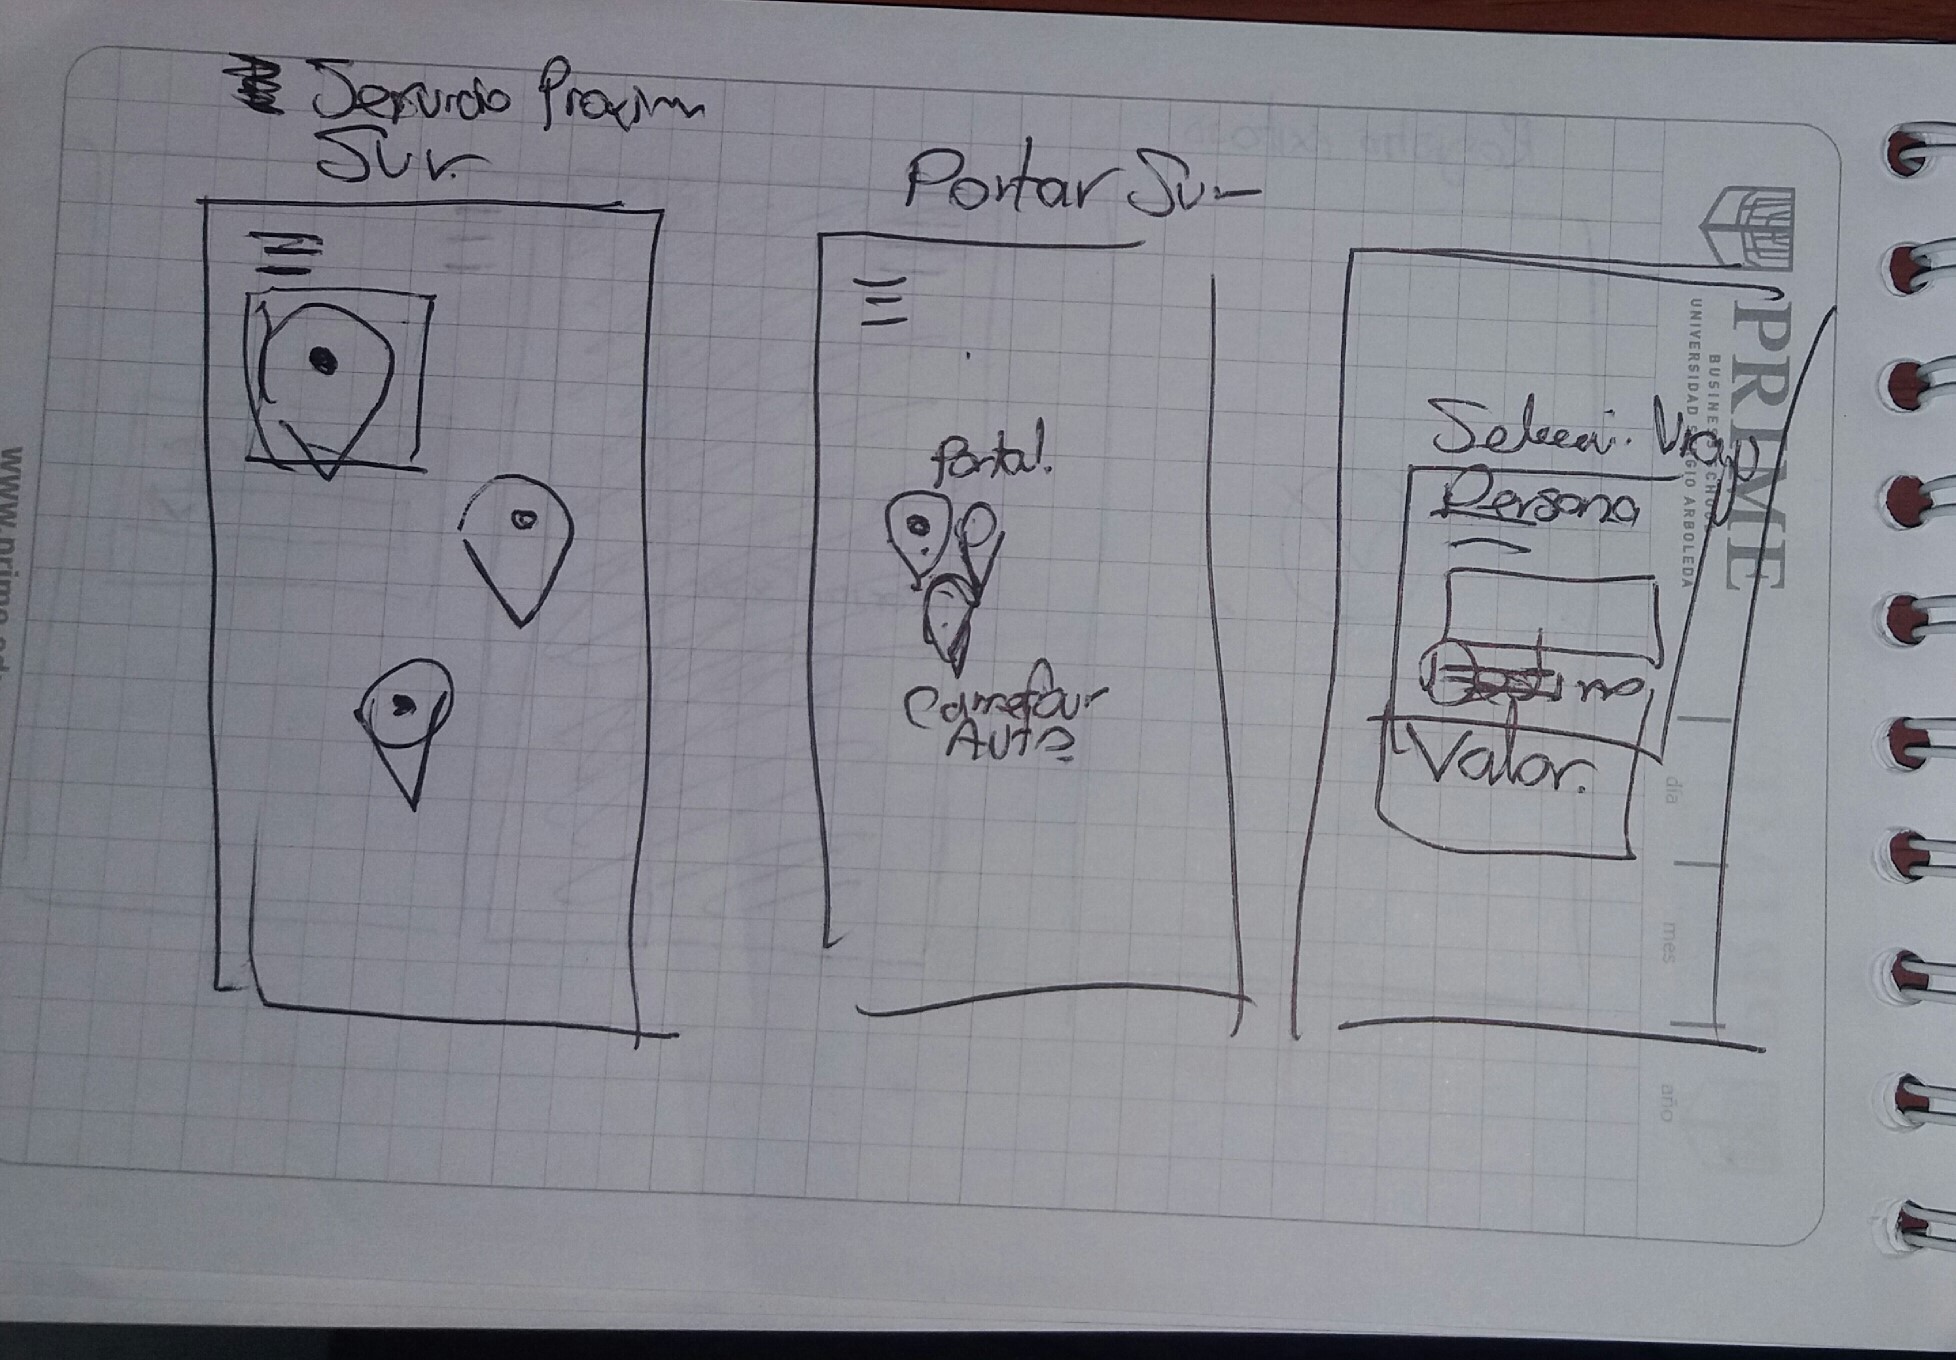 Servicio Proxim
Sur.
Portar Sur
Portal.
Carrefour
Auto
Selecci. Viaj
Persona
Destino
Valor.
PRIME
BUSINESS SCHOOL
UNIVERSIDAD SERGIO ARBOLEDA
día
mes
año